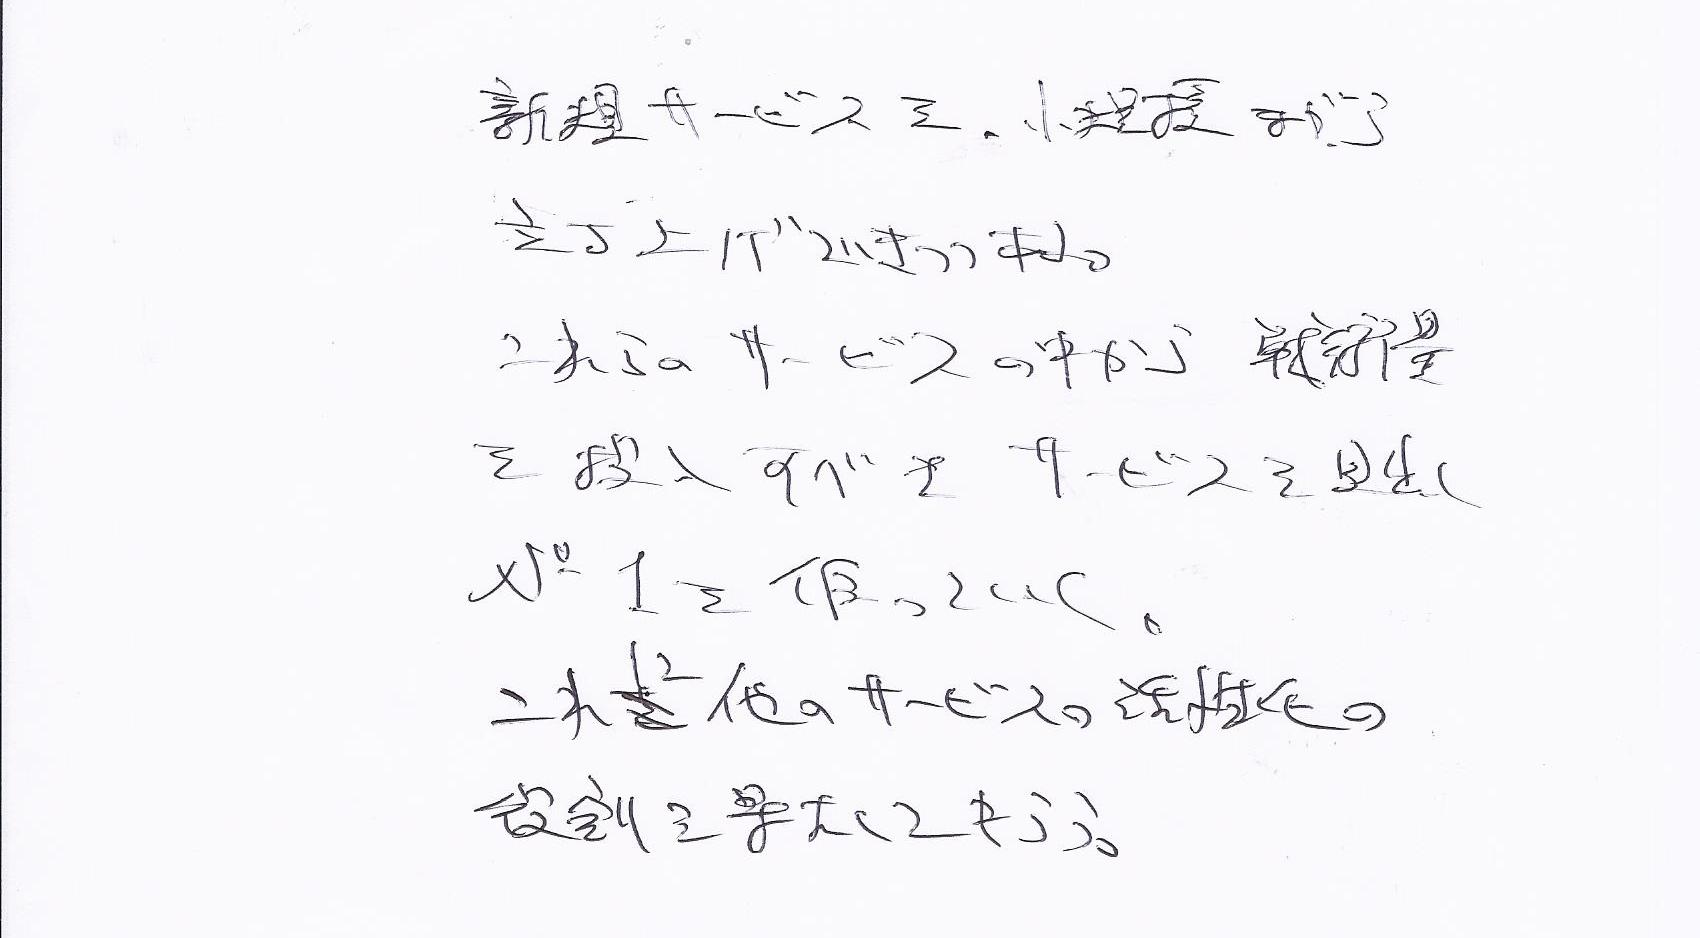 新規サービスを、小規模ながら
立ち上げていきつつある。
これらのサービスの中から 戦術量
を投入すべき サービスを見出し
パワーを使っていく。
これに他のサービスの活性化の
役割を果たしてもらう。